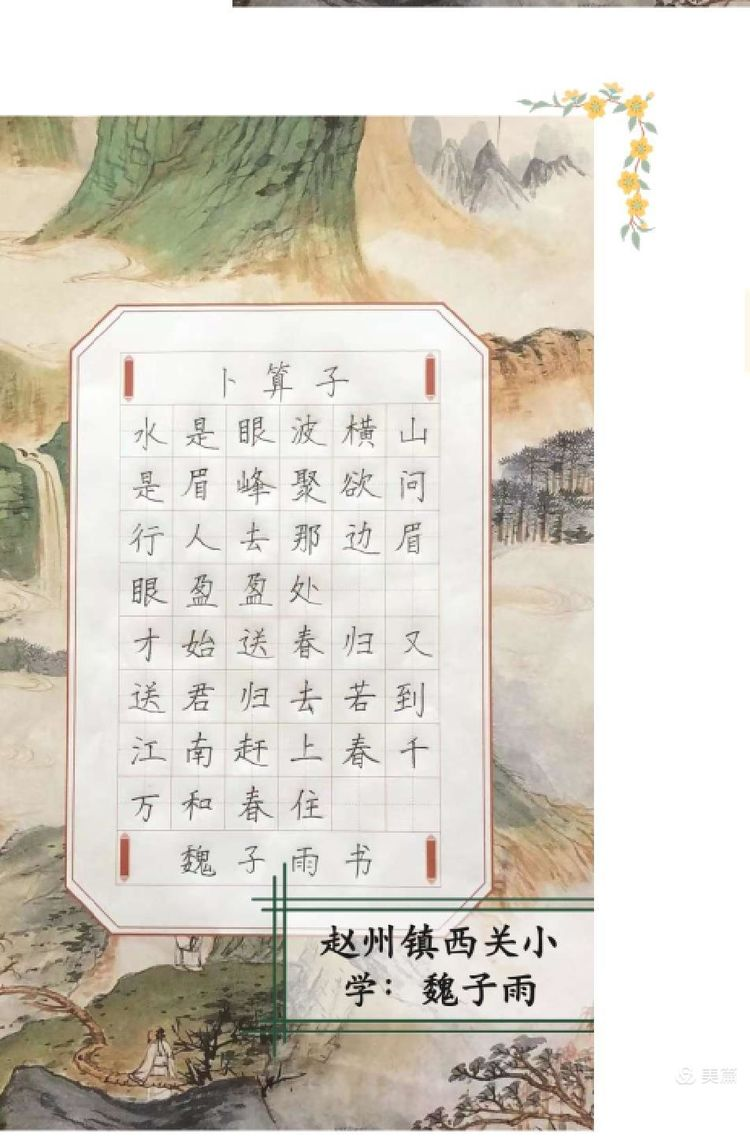 卜算子
水是眼波横山
是眉峰聚欲问
行人去那边眉
眼盈盈处
才始送春归又
送君归去若到
江南赶上春千
万和春住
魏子雨书
赵州镇西关小
学：魏子雨
美篇